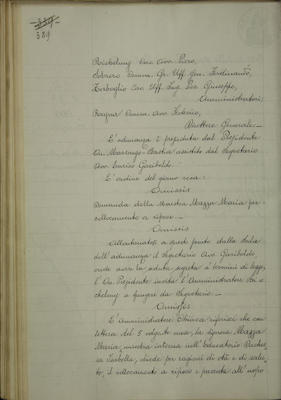 389
Cav. Avv. Piero,
Comm. Gr. Uff. Gen. Ferdinando,
Cav. Uff. Ing. Giuseppe,
Amministratori;
Comm. Avv. Federico,
Direttore Generale.
L'adunanza è presieduta dal Presidente
On. Marengo assistito dal Segretario
Avv. Enrico Garibaldi.
L'ordine del giorno reca:
Omissis
Domanda della Maestra Mazza Maria per
collocamento a riposo.
Omissis
Allontanatosi a questo punto dalla Sala
dell'adunanza il Segretario Avv. Garibaldi,
seduta segreta a termini di legge,
l'On. Presidente invita l'Amministratore
a fungere da Segretario.
Omissis
L'Amministratore riferisce che con
lettera del 5 volgente mese, la Signora Mazza
Maria, maestra interna nell'Educatorio Duches-
sa Isabella, chiede per ragioni di età e di salu-
te, il collocamento a riposo e presenta all'uopo